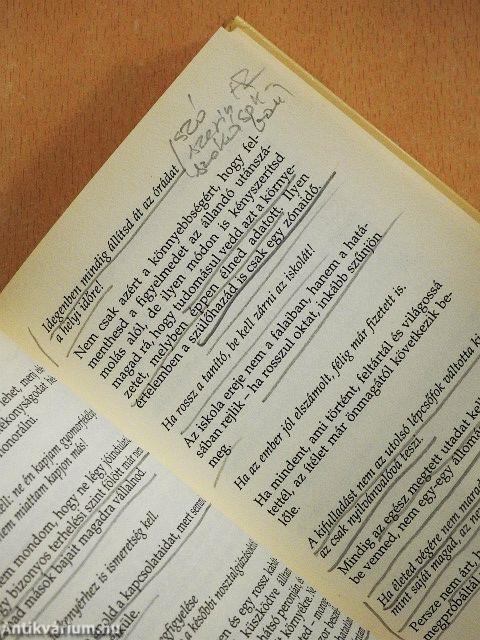 szó
szerin
Idegenben mindig állítsd át az órádat
a helyi időre!
Nem csak azért a könnyebbségért, hogy fel-
menthesd a figyelmedet az állandó utánszá-
molás alól, de ilyen módon is kényszerítsd
magad rá, hogy tudomásul vedd azt a környe-
zetet, melyben éppen élned adatott. Ilyen
értelemben a szülőházad is csak egy zónaidő.
Ha rossz a tanító, be kell zárni az iskolát!
Az iskola ereje nem a falaiban, hanem a hatá-
sában rejlik – ha rosszul oktat, inkább szűnjön
meg.
Ha az ember jól elszámolt, félig már fizetett is.
Ha mindent, ami történt, feltártál és világossá
tettél, az ítélet már önmagától következik be-
lőle.
A kifulladást nem az utolsó lépcsőfok váltotta ki
az csak nyilvánvalóvá teszi.
Mindig az egész megtett utadat kell
be venned, nem egy-egy állomá
Ha életed végére nem marad
mint saját magad, az ne
Persze nem árt,
megpróbált
lehet, menj el
tékonyságodat be
honorálni.
kell: ne én kapjam, gyomorfekély
nem miattam kapjon más!
em mondom, hogy ne légy jóindulat
gy bizonyos terhelés szint fölött már ne
d mások bajait magadra vállalnod.
nyérhez is ismeretség kell.
old a kapcsolataidat, mert semmi
ülle.
nfigyelése
a későbbi nosztalgiázásoktól
és egy rossz kabát
küszködve állsz
Antikvárium.hu